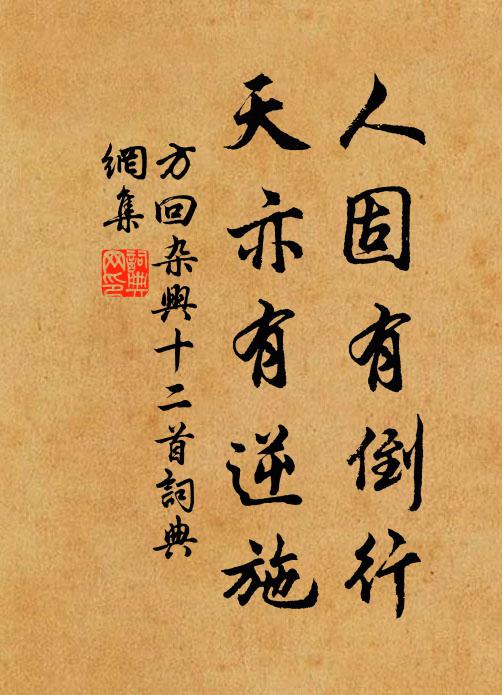 人固有倒行
天亦有逆施
方回杂興十二首詞典
網集
詞典
网印